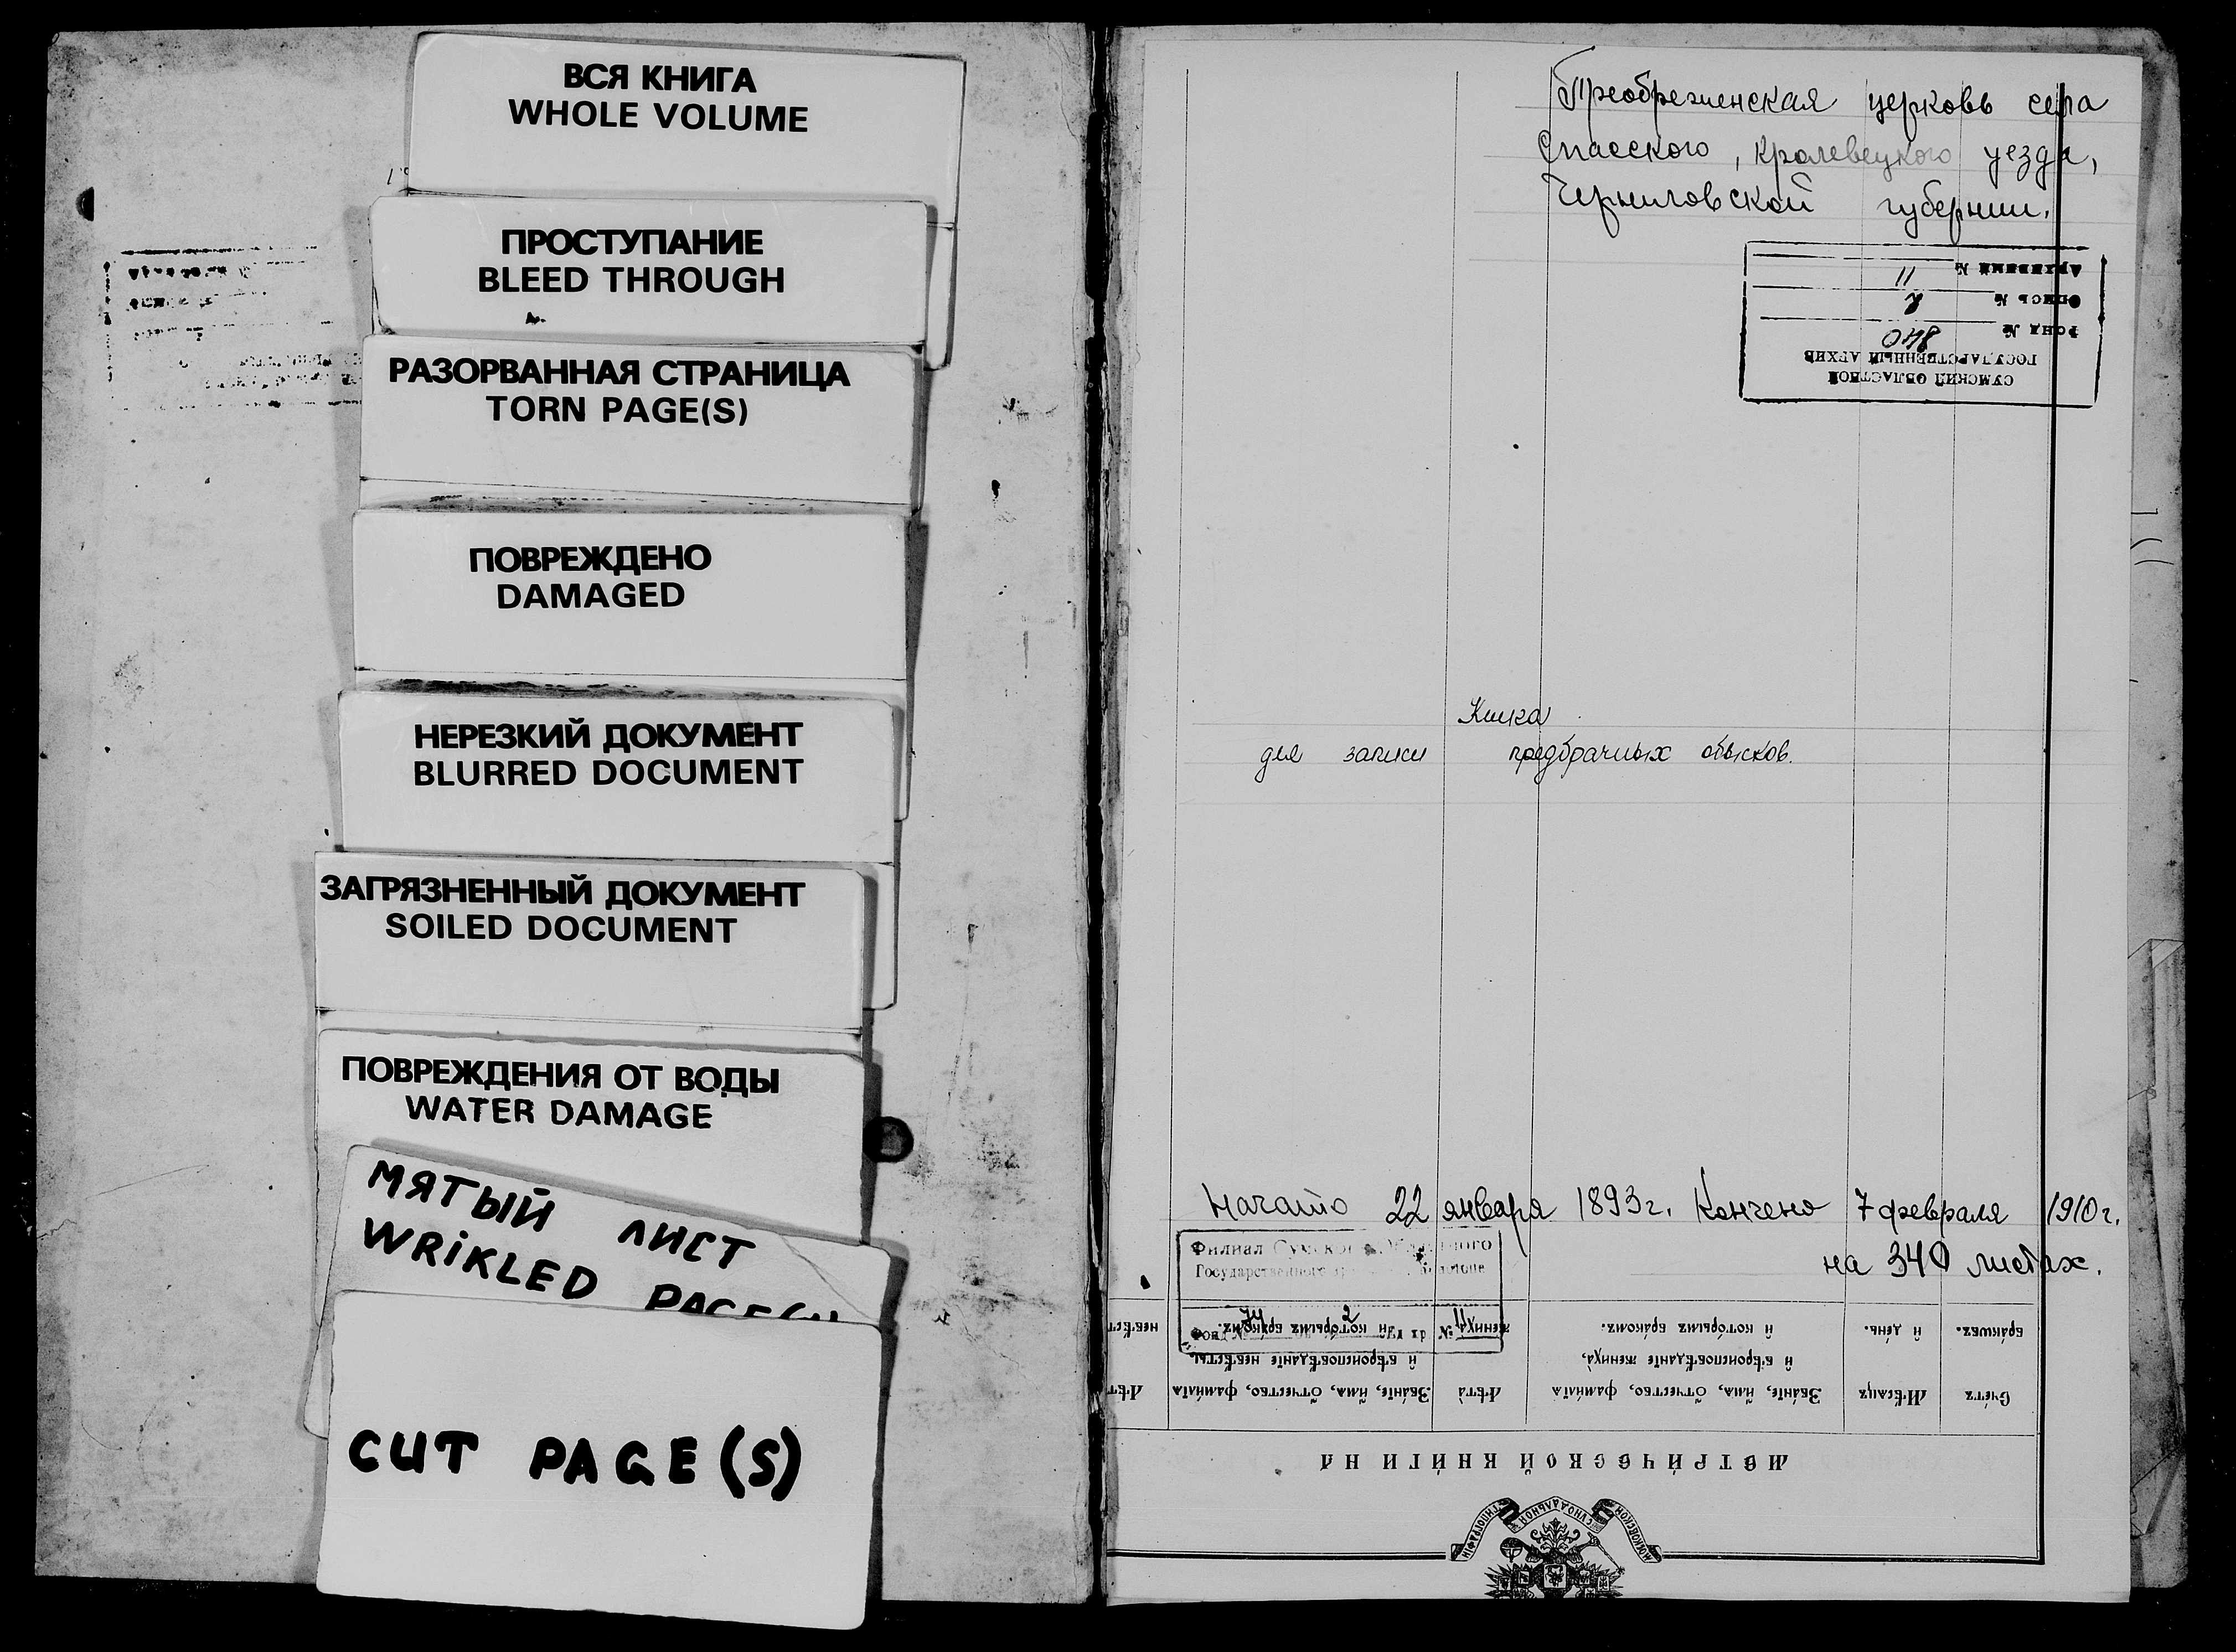 ВСЯ КНИГА
WHOLE VOLUME
ПРОСТУПАНИЕ
BLEED THROUGH
РАЗОРВАННАЯ СТРАНИЦА
TORN PAGE(S)
ПОВРЕЖДЕНО
DAMAGED
НЕРЕЗКИЙ ДОКУМЕНТ
BLURRED DOCUMENT
ЗАГРЯЗНЕННЫЙ ДОКУМЕНТ
SOILED DOCUMENT
ПОВРЕЖДЕНИЯ ОТ ВОДЫ
WATER DAMAGE
МЯТЫЙ ЛИСТ
WRiKLED
CUT PAGE(S)
Преображенская церковь села
Спасского, Кролевецкого уезда,
Черниговской губернии.
СУМСКИЙ ОБЛАСТНОЙ
ГОСУДАРСТВЕННЫЙ АРХИВ
ФОНД № 840
ОПИСЬ № 2
11
Книга
для записи предбрачных обысков.
Начато 22 января 1893 г. Кончено 7 февраля 1910 г.
на 340 листах.
Филиал
Государственного
№ 11
МОСКОВСКОЙ СѴНОДАЛЬНОЙ ТИПОГРАФІИ
МЕТРИ́ЧЕСКОЙ КНИ́ГИ НА
Сче́тъ
бра́кшвъ.
Мѣ́сѧцъ
и҆ де́нь.
Зва́нїе, и҆́мѧ, ѻ҆́тчество, фами́лїѧ
и҆ вѣроисповѣ́данїе жениха̀,
и҆ кото́рымъ бра́комъ.
Лѣ́та
жениха̀.
Зва́нїе, и҆́мѧ, ѻ҆́тчество, фами́лїѧ
и҆ вѣроисповѣ́данїе невѣ́сты,
и҆ кото́рымъ бра́комъ.